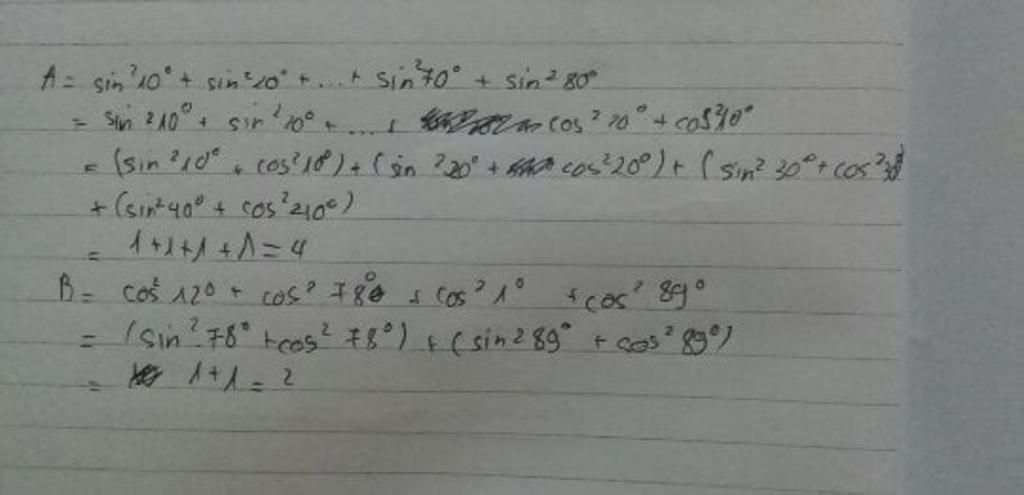 A = sin²10° + sin²20° + ... + sin²70° + sin²80°
= sin²10° + sin²20° + ... + cos²20° + cos²10°
= (sin²10° + cos²10°) + (sin²20° + cos²20°) + (sin²30° + cos²30°)
+ (sin²40° + cos²40°)
= 1+1+1+1 = 4
B = cos²12° + cos²78° + cos²1° + cos²89°
= (sin²78° + cos²78°) + (sin289° + cos²89°)
= 1+1 = 2